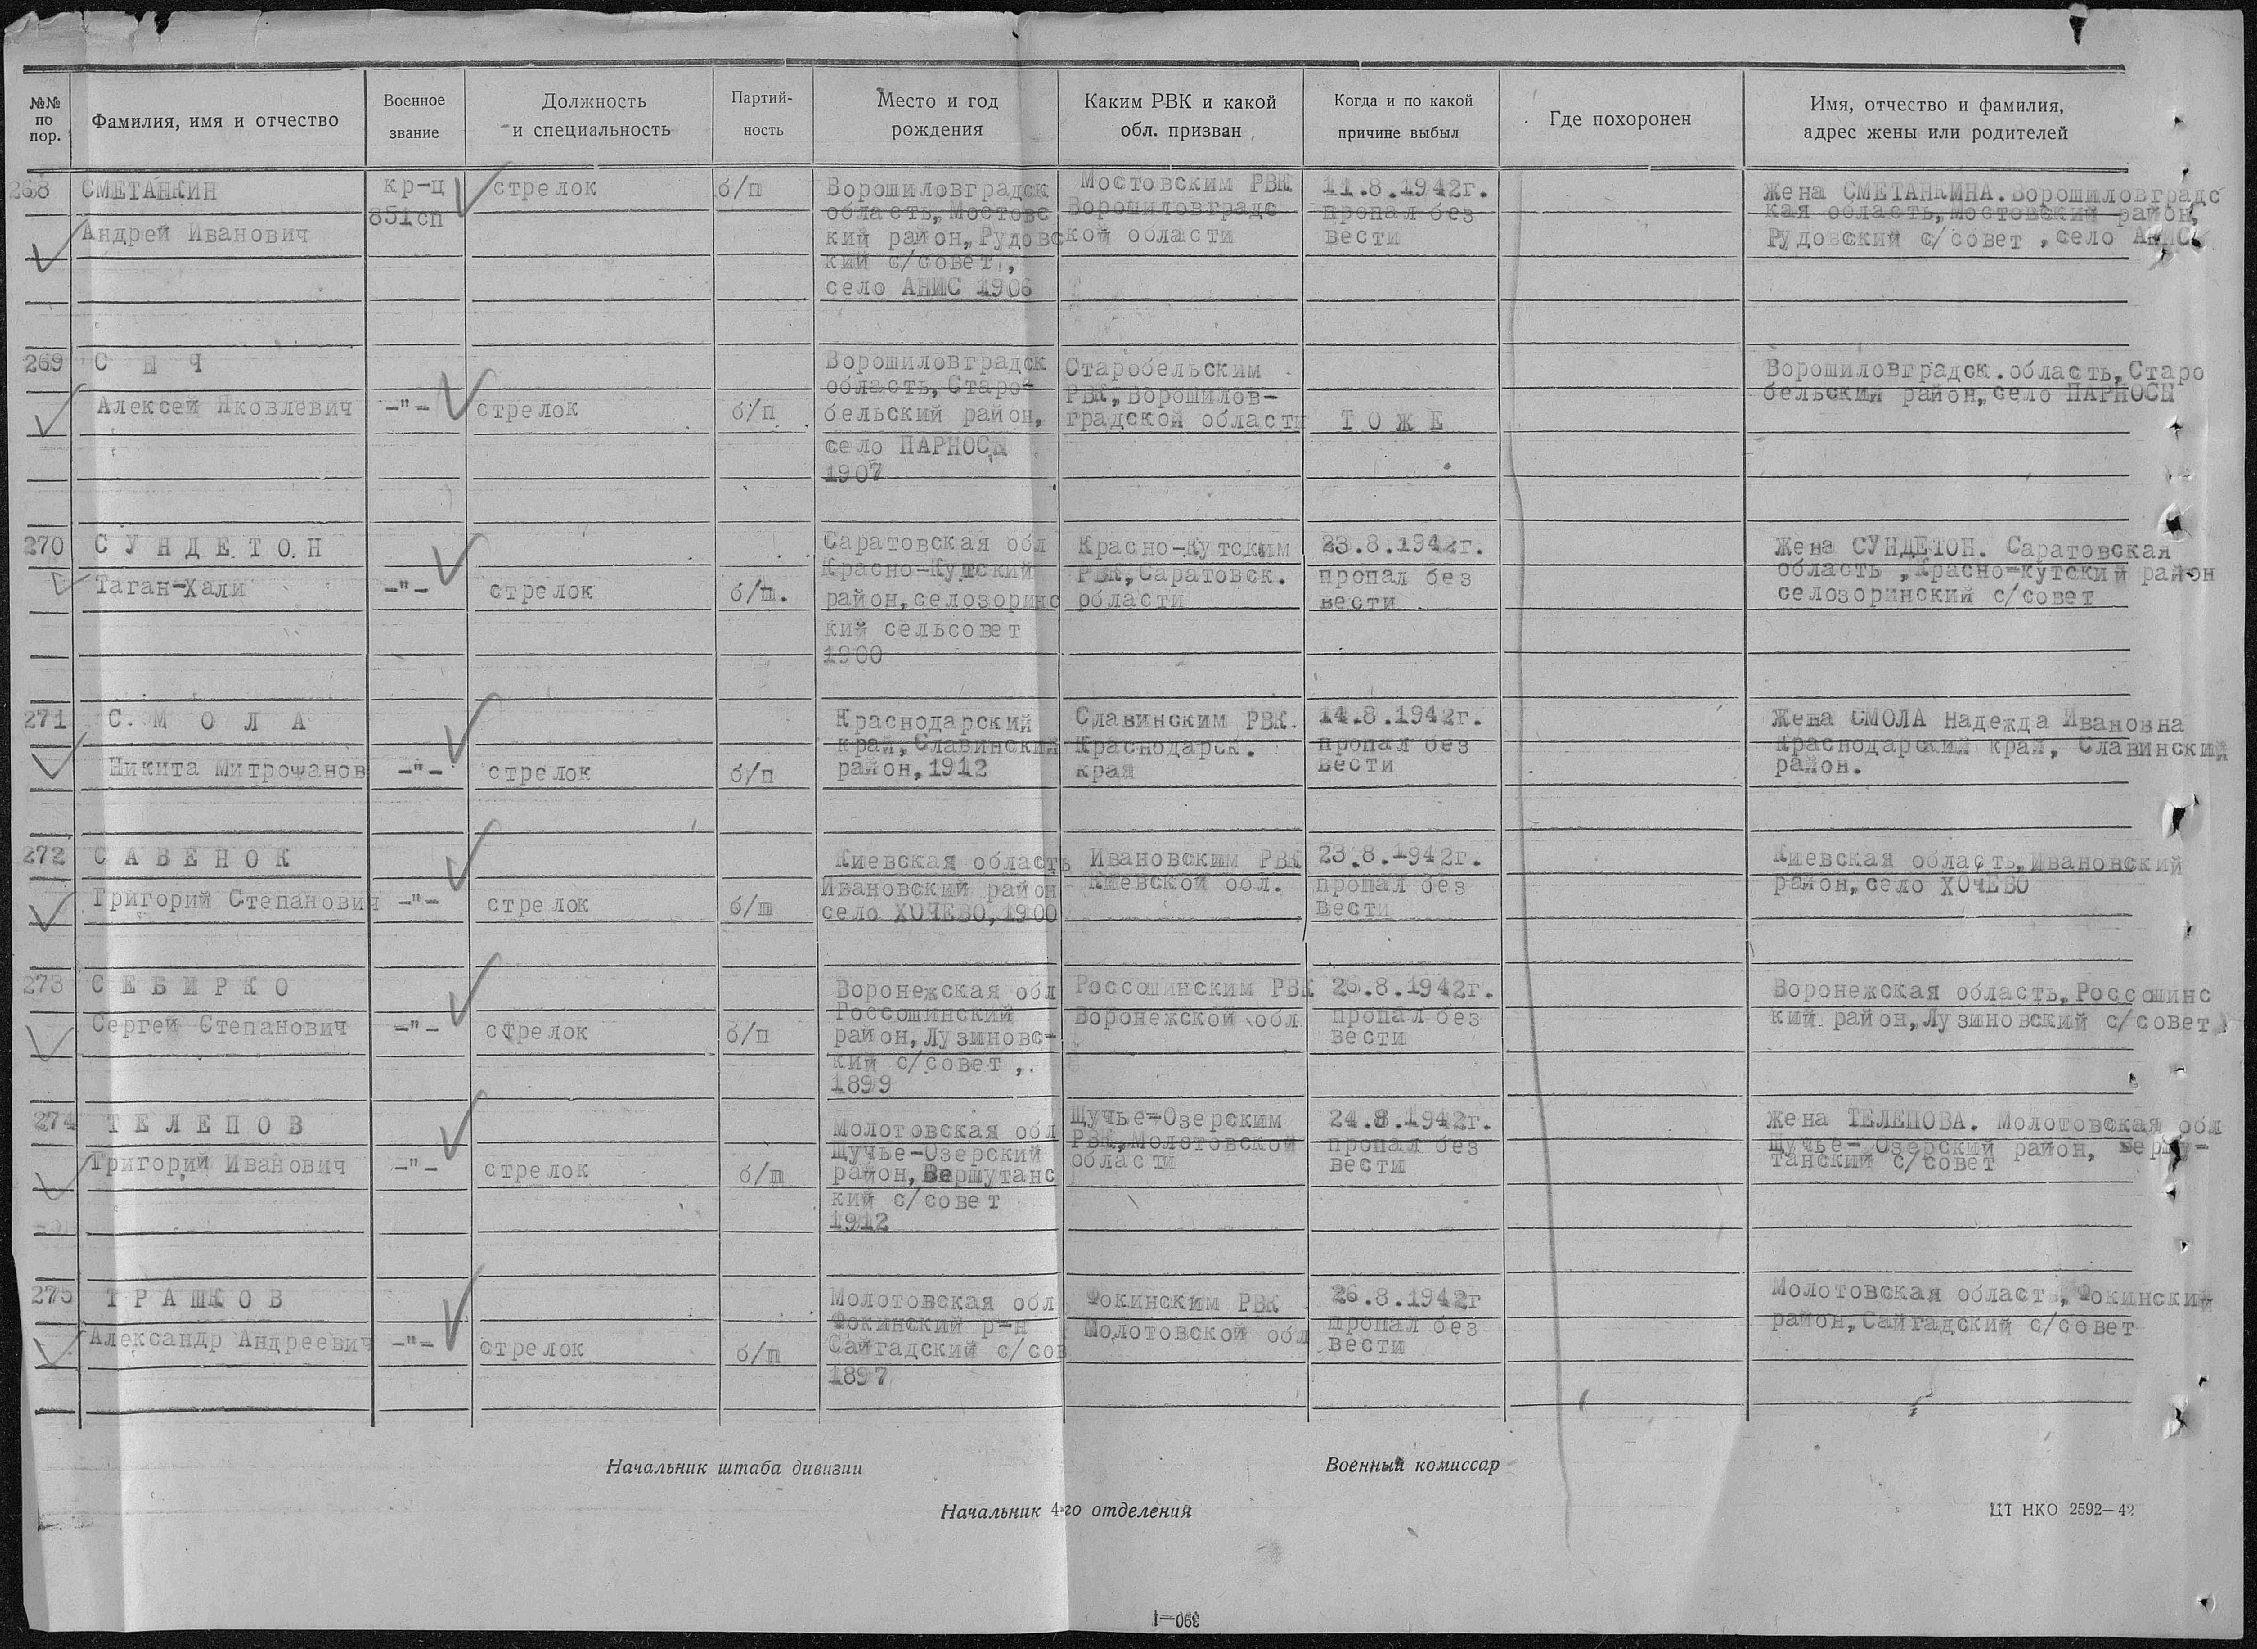 №№ по пор.
Фамилия, имя и отчество
Военное звание
Должность и специальность
Партий-ность
Место и год рождения
Каким РВК и какой обл. призван
Когда и по какой причине выбыл
Где похоронен
Имя, отчество и фамилия, адрес жены или родителей
268
СМЕТАНКИН
Андрей Иванович
кр-ц
851сп
стрелок
б/п
Ворошиловградск
область, Мостовс
кий район, Рудовс
кий с/совет,
село АНИС 1906
Мостовским РВК
Ворошиловградс
кой области
11.8.1942г.
пропал без
вести
Жена СМЕТАНКИНА. Ворошиловградс
кая область, Мостовский район,
Рудовский с/совет, село
269
С Ы Ч
Алексей Яковлевич
-"-
стрелок
б/п
Ворошиловградск
область, Старо-
бельский район,
село ПАРНОСЫ
1907
Старобельским
РВК, Ворошилов-
градской области
Т О Ж Е
Ворошиловградск. область, Старо
бельский район, село ПАРНОСЫ
270
С У Н Д Е Т О Н
Таган-Хали
-"-
стрелок
б/п.
Саратовская обл
Красно-Кутский
район, селозоринс
кий сельсовет
1900
Красно-Кутским
РВК, Саратовск.
области
23.8.1942г.
пропал без
вести
Жена СУНДЕТОН. Саратовская
область, Красно-Кутский район
селозоринский с/совет
271
С М О Л А
Никита Митрофанов
-"-
стрелок
б/п
Краснодарский
край, Славинский
район, 1912
Славинским РВК.
Краснодарск.
края
14.8.1942г.
пропал без
вести
Жена СМОЛА Надежда Ивановна
Краснодарский край, Славинский
район.
272
С А В Е Н О К
Григорий Степанович
-"-
стрелок
б/п
Киевская область
Ивановский район
село ХОЧЕВО, 1900
Ивановским РВК
Киевской обл.
23.8.1942г.
пропал без
вести
Киевская область, Ивановский
район, село ХОЧЕВО
273
С Е Б И Р К О
Сергей Степанович
-"-
стрелок
б/п
Воронежская обл
Россошинский
район, Лузиновс-
кий с/совет,
1899
Россошинским РВК
Воронежской обл
26.8.1942г.
пропал без
вести
Воронежская область, Россошинс
кий район, Лузиновский с/совет
274
Т Е Л Е П О В
Григорий Иванович
-"-
стрелок
б/п
Молотовская обл
Щучье-Озерский
район, Вершутанс
кий с/совет
1912
Щучье-Озерским
РВК, Молотовской
области
24.8.1942г.
пропал без
вести
Жена ТЕЛЕПОВА. Молотовская обл
Щучье-Озерский район, Вершу-
танский с/совет
275
Т Р А Ш К О В
Александр Андреевич
-"-
стрелок
б/п
Молотовская обл
Фокинский р-н
Сайгадский с/сов
1897
Фокинским РВК
Молотовской обл
26.8.1942г
пропал без
вести
Молотовская область, Фокинский
район, Сайгадский с/совет
Начальник штаба дивизии
Военный комиссар
Начальник 4-го отделения
ЦТ НКО 2592—42
390—1